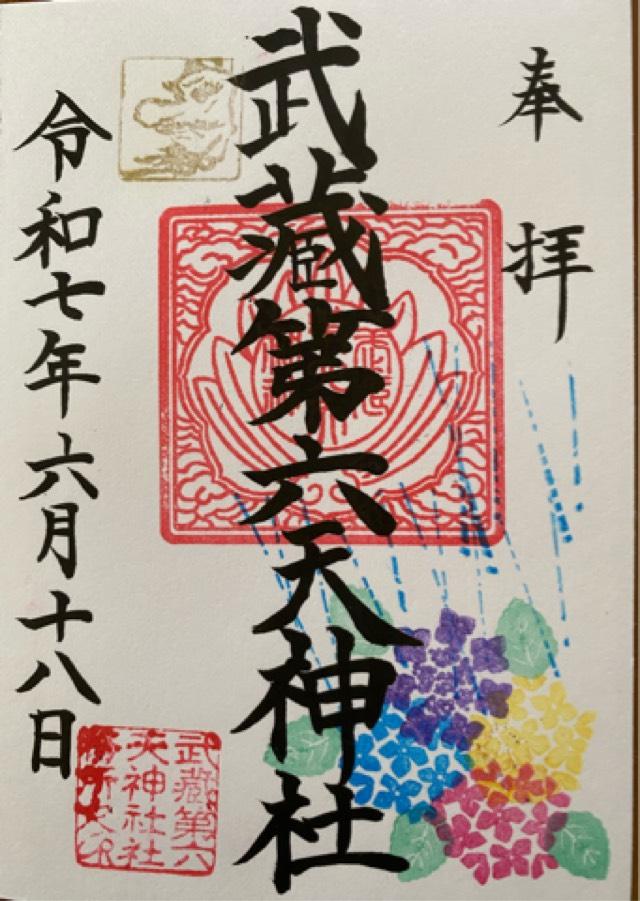 奉拝
武蔵第六天神社
令和七年六月十八日
武蔵第六
天神社社